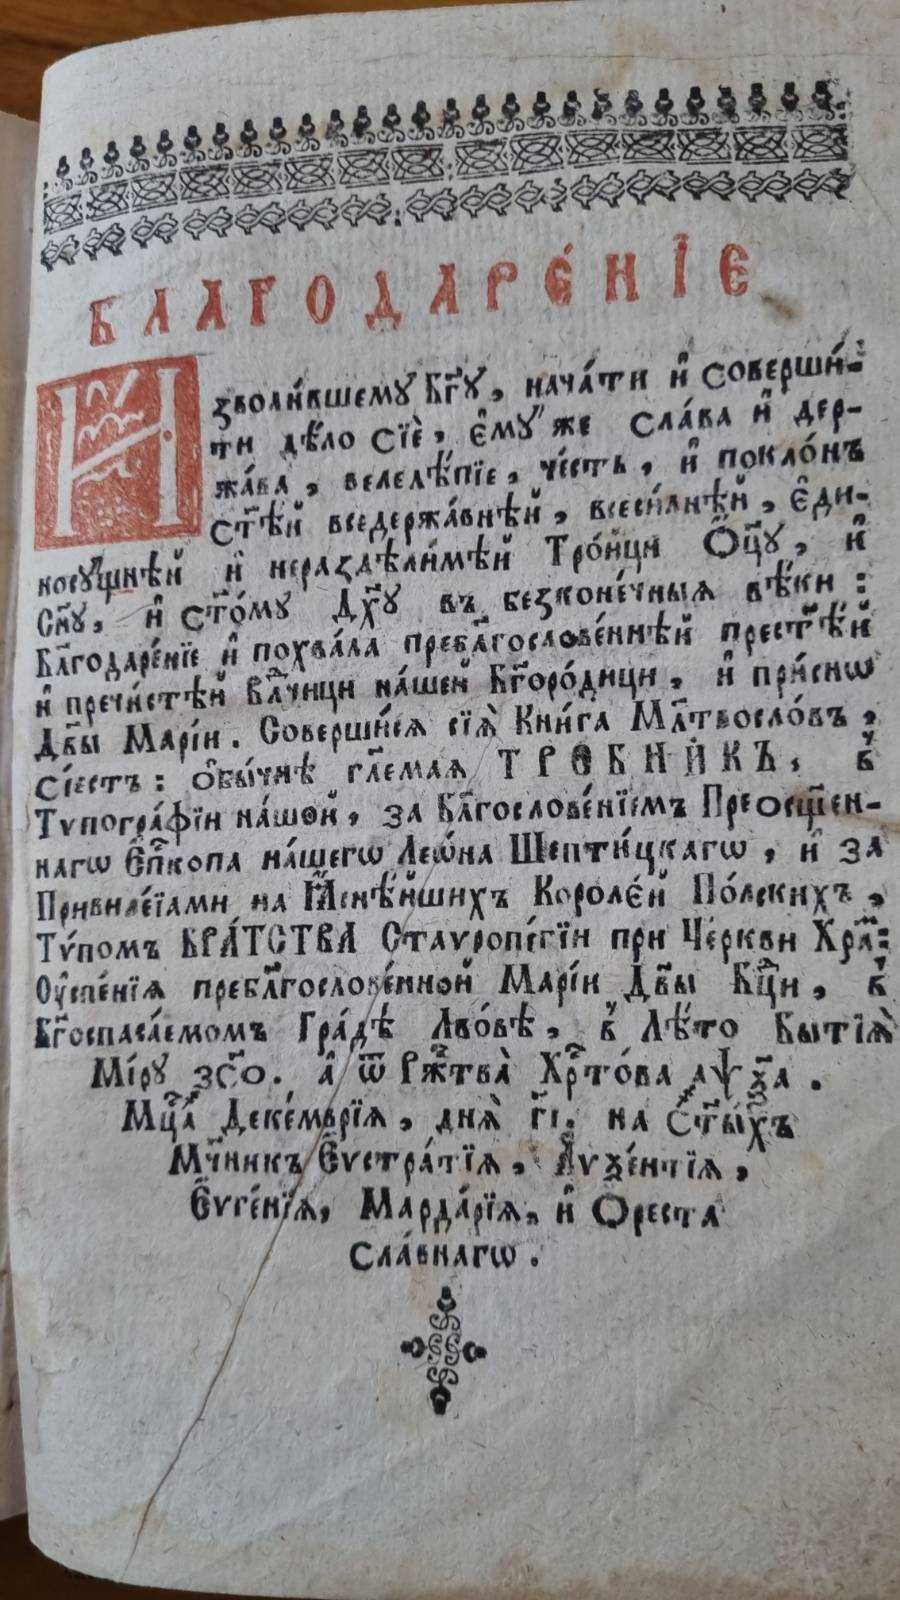 БЛАГОДАРЕ́НЇЕ
И҆зволи́вшемꙋ Бг҃ꙋ, нача́ти и҆ соверши́-
ти дѣ́ло сїѐ, є҆мꙋ́ же сла́ва и҆ дер-
жа́ва, велелѣ́пїе, че́сть, и҆ покло́нъ
ст҃ѣ́й вседержа́внѣй, всеси́лнѣй, є҆ди-
носꙋ́щнѣй и҆ нераздѣли́мѣй Тро́йци Ѻ҆ц҃ꙋ, и҆
Сн҃ꙋ, и҆ ст҃о́мꙋ Дх҃ꙋ въ безконе́чныѧ вѣ́ки:
Бл҃годаре́нїе и҆ похва́ла пребл҃гослове́ннѣй прест҃ѣ́й
и҆ пречи́стѣй Влⷣчици на́шей Бг҃оро́дици, и҆ при́снѡ
Дв҃ы Марі́и. Соверши́сѧ сїѧ̀ Кни́га Мл҃твосло́въ,
сі́естъ: ѻ҆бы́чнѣ гл҃емаѧ ТРЕБНИ́КЪ. в̾
Тѵпогра́фїи на́шой, за Бл҃гослове́нїемъ Преѡсщ҃ен-
нагѡ Є҆пⷭ҇копа на́шегѡ Леѡ́на Шепти́цкагѡ, и҆ за
Привиле́їами на Ꙗ҆снѣ́йшихъ Короле́й По́лскихъ,
Тѵ́помъ БРА́ТСТВА Стаѵропи́гїи при Че́ркви Хра́:
Оу҆спе́нїѧ пребл҃гослове́нной Марі́и Дв҃ы Бц҃и, в̾
Бг҃оспаса́емомъ Гра́дѣ Лво́вѣ, в̾ Лѣ́то Бытїѧ̀
Мі́рꙋ зс҃о. а҆ ѿ Ржⷭ҇тва̀ Хрⷭ҇то́ва аѱѯ҃а.
Мцⷭ҇а Декемврїѧ, днѧ̀ г҃і. на Ст҃ы́хъ
Мч҃никъ Є҆ѵстра́тїѧ, А҆ѵѯе́нтїѧ,
Є҆ѵге́нїѧ, Марда́рїѧ, и҆ Ѻ҆реста
сла́внагѡ.